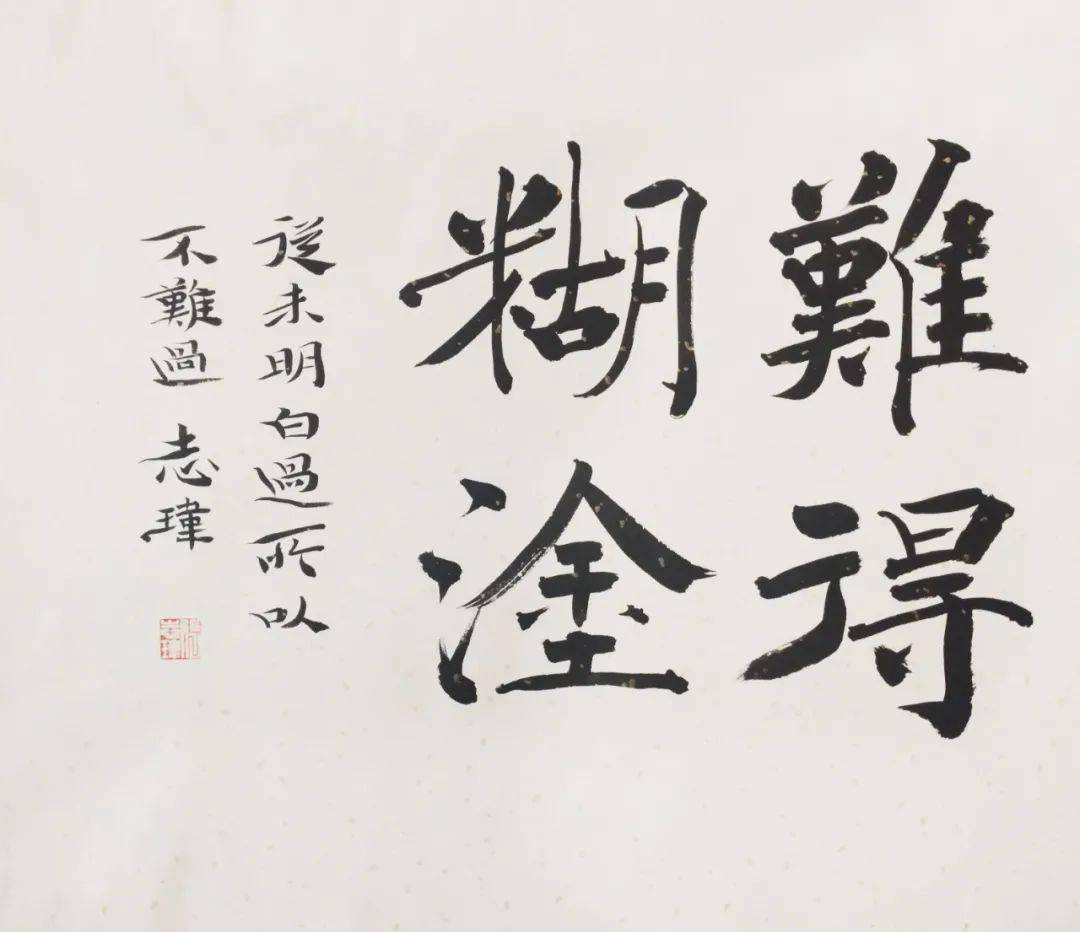 難得
糊塗
從未明白過所以
不難過 志瑋